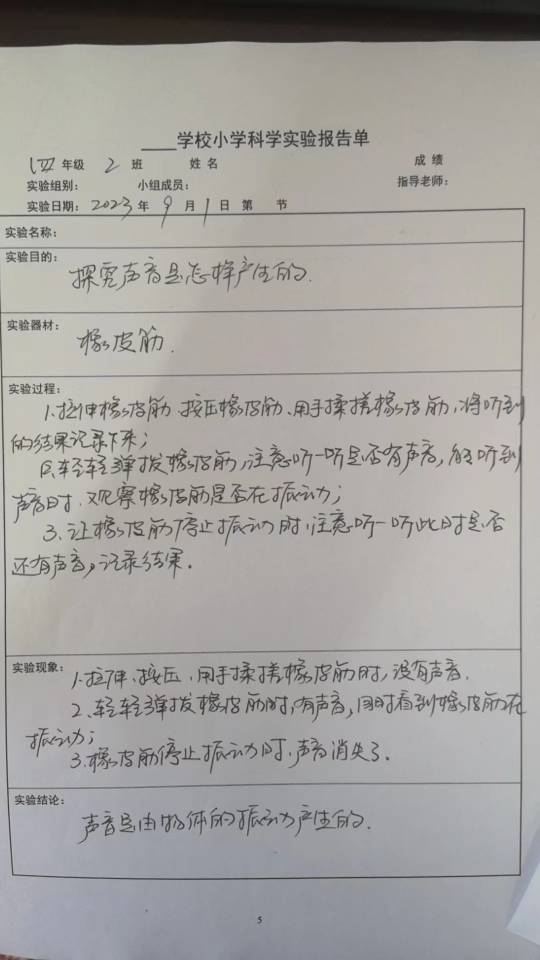 ____学校小学科学实验报告单
四 年级 2 班 姓名 成绩
实验组别： 小组成员： 指导老师：
实验日期：2023 年 9 月 1 日 第 节
实验名称：
实验目的：
探究声音是怎样产生的.
实验器材：
橡皮筋.
实验过程：
1.拉伸橡皮筋、按压橡皮筋、用手揉搓橡皮筋,将听到
的结果记录下来;
2.轻轻弹拨橡皮筋,注意听一听是否有声音,能听到
声音时,观察橡皮筋是否在振动;
3.让橡皮筋停止振动时,注意听一听此时是否
还有声音,记录结果.
实验现象：
1.拉伸、按压、用手揉搓橡皮筋时,没有声音.
2.轻轻弹拨橡皮筋时,有声音,同时看到橡皮筋在
振动;
3.橡皮筋停止振动时,声音消失了.
实验结论：
声音是由物体的振动产生的.
5